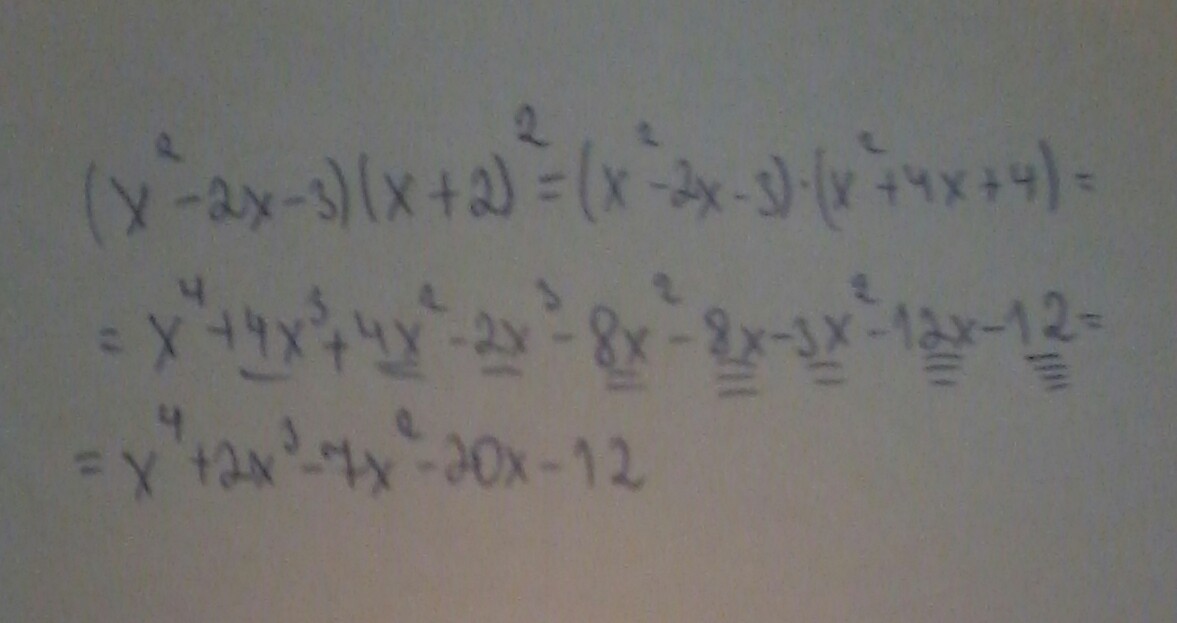 (x²-2x-3)(x+2)²=(x²-2x-3)·(x²+4x+4)=
=x⁴+4x³+4x²-2x³-8x²-8x-3x²-12x-12=
=x⁴+2x³-7x²-20x-12